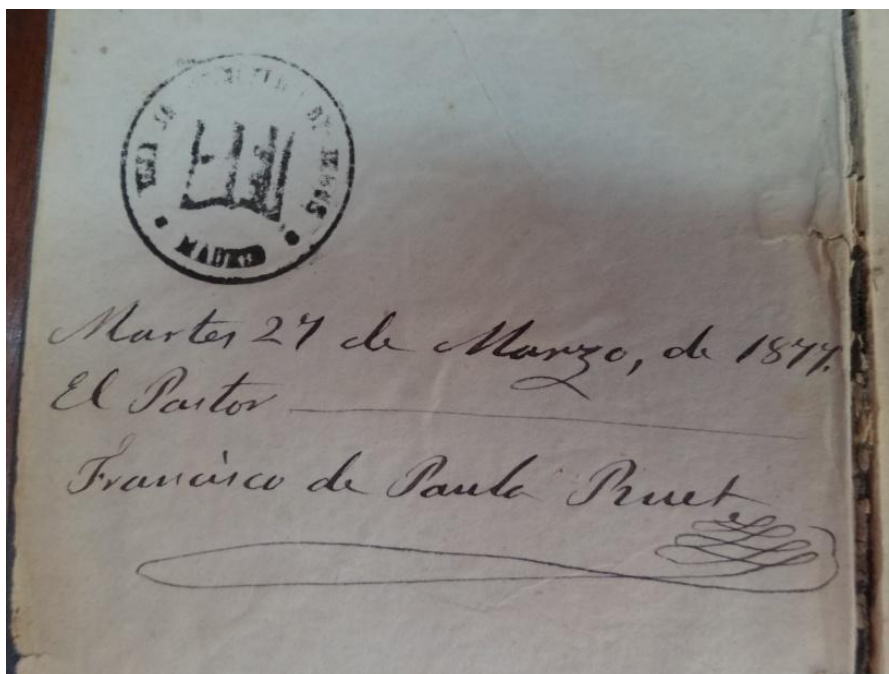 DE JESUS
MADRID
Martes 27 de Marzo, de 1877.
El Pastor
Francisco de Paula Ruet